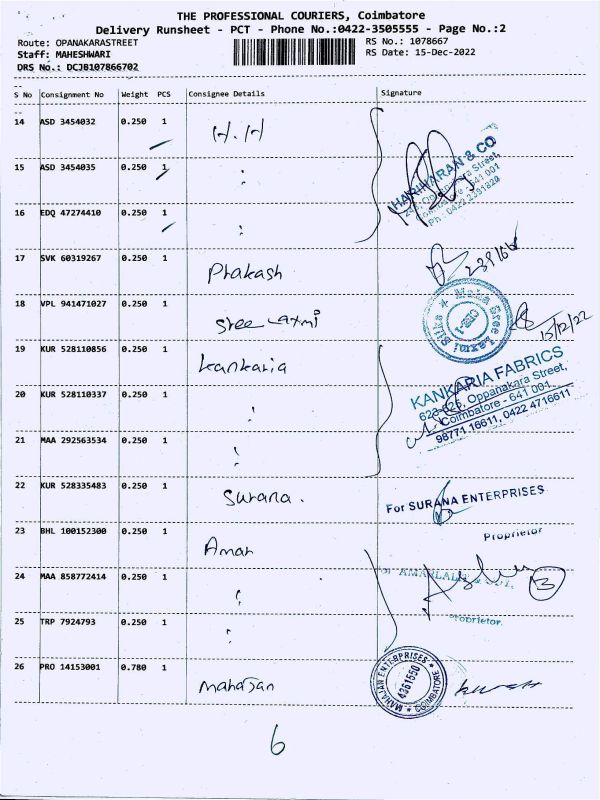 THE PROFESSIONAL COURIERS, Coimbatore
Delivery Runsheet - PCT - Phone No.:0422-3505555 - Page No.:2
Route: OPANAKARASTREET
RS No.: 1078667
Staff: MAHESHWARI
RS Date: 15-Dec-2022
DRS No.: DCJB107866702
S No Consignment No Weight PCS Consignee Details Signature
14 ASD 3454032 0.250 1 H.H
15 ASD 3454035 0.250 1 :
HARIHARAN & CO
Oppanakara Street,
Coimbatore - 641 001
Ph : 0422 2391820
16 EDQ 47274410 0.250 1 :
17 SVK 60319267 0.250 1 Prakash
18 VPL 941471027 0.250 1 Sree Laxmi
Maha Sree Laxmi Silks
15/12/22
19 KUR 528110856 0.250 1 Kankaria
KANKARIA FABRICS
Oppanakara Street,
Coimbatore - 641 001.
98771 16611, 0422 4716611
20 KUR 528110337 0.250 1 :
21 MAA 292563534 0.250 1 :
22 KUR 528335483 0.250 1 Surana.
For SURANA ENTERPRISES
Proprietor
23 BHL 100152300 0.250 1 Aman
24 MAA 858772414 0.250 1 :
3
25 TRP 7924793 0.250 1 :
Proprietor.
26 PRO 14153001 0.780 1 Mahajan
MAHAJAN ENTERPRISES
4361550
COIMBATORE
6